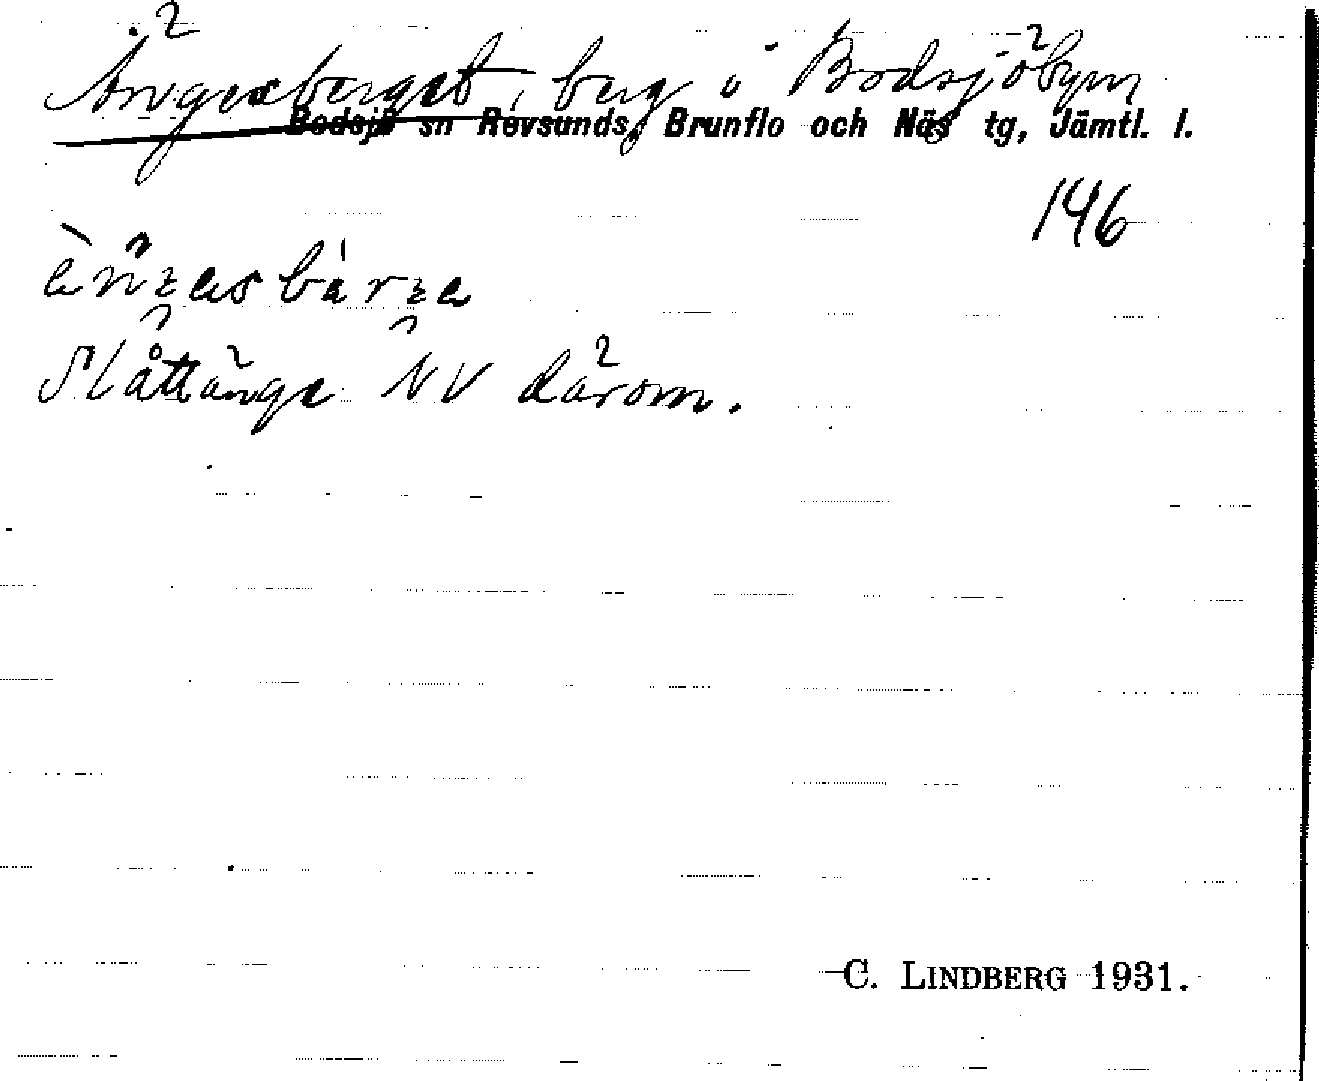 Ängesberget, berg i Bodsjöbyn
Bodsjö sn Revsunds, Brunflo och Näs tg, Jämtl. l.
146
Slåttänge NV därom.
C. LINDBERG 1931.